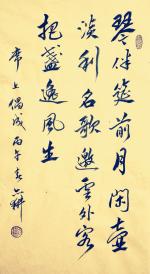 琴伴筵前月閑壺
淡利名歌邀雲外客
把盞逸風生
席上偶成丙午